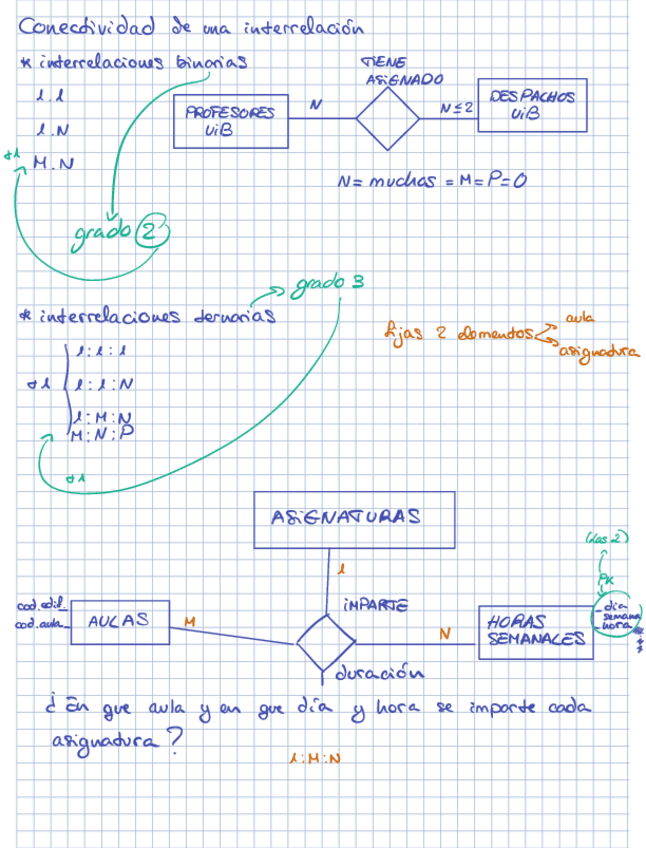 Conectividad de una interrelación
* interrelaciones binarias
1.1
1.N
+1
M.N
grado 2
TIENE
ASIGNADO
PROFESORES
UiB
N
N≤2
DESPACHOS
UiB
N = muchas = M = P = O
grado 3
* interrelaciones ternarias
fijas 2 elementos
aula
asignatura
+1
1:1:1
1:1:N
1:M:N
M:N:P
+1
ASiGNATURAS
1
(Las 2)
PK
- día
semana
- hora
cod.edif_
cod.aula_
AULAS
M
iMPARTE
N
HORAS
SEMANALES
duración
¿ En que aula y en que día y hora se imparte cada
asignatura ?
1:M:N